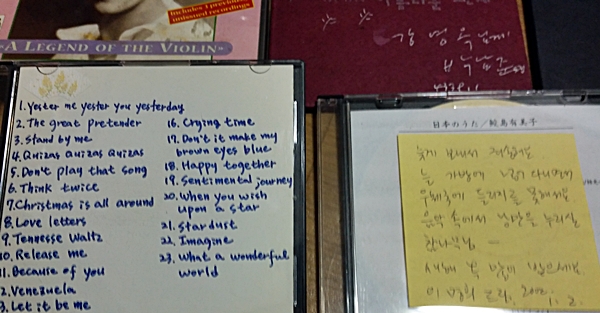 Includes 3 previously
unissued recordings
A LEGEND OF THE VIOLIN
1. Yester me yester you yesterday
2. The great pretender
3. Stand by me
4. Quizas Quizas Quizas
5. Don't play that song
6. Think twice
7. Christmas is all around
8. Love letters
9. Tennesse Waltz
10. Release me
11. Because of you
2. Venezuela
3. Let it be me
16. Crying time
17. Don't it make my
brown eyes blue
18. Happy together
19. Sentimental journey
20. When you wish
upon a star
21. Stardust
22. Imagine
23. What a wonderful
world
日本のうた／鮫島有美子
늦게 보내서 죄송해요
늘 가방에 넣어 다니면서
우체국에 들리지를 못해서요
음악 속에서 낭만을 누리실
새해 복 많이 받으세요
2002. 1. 2.